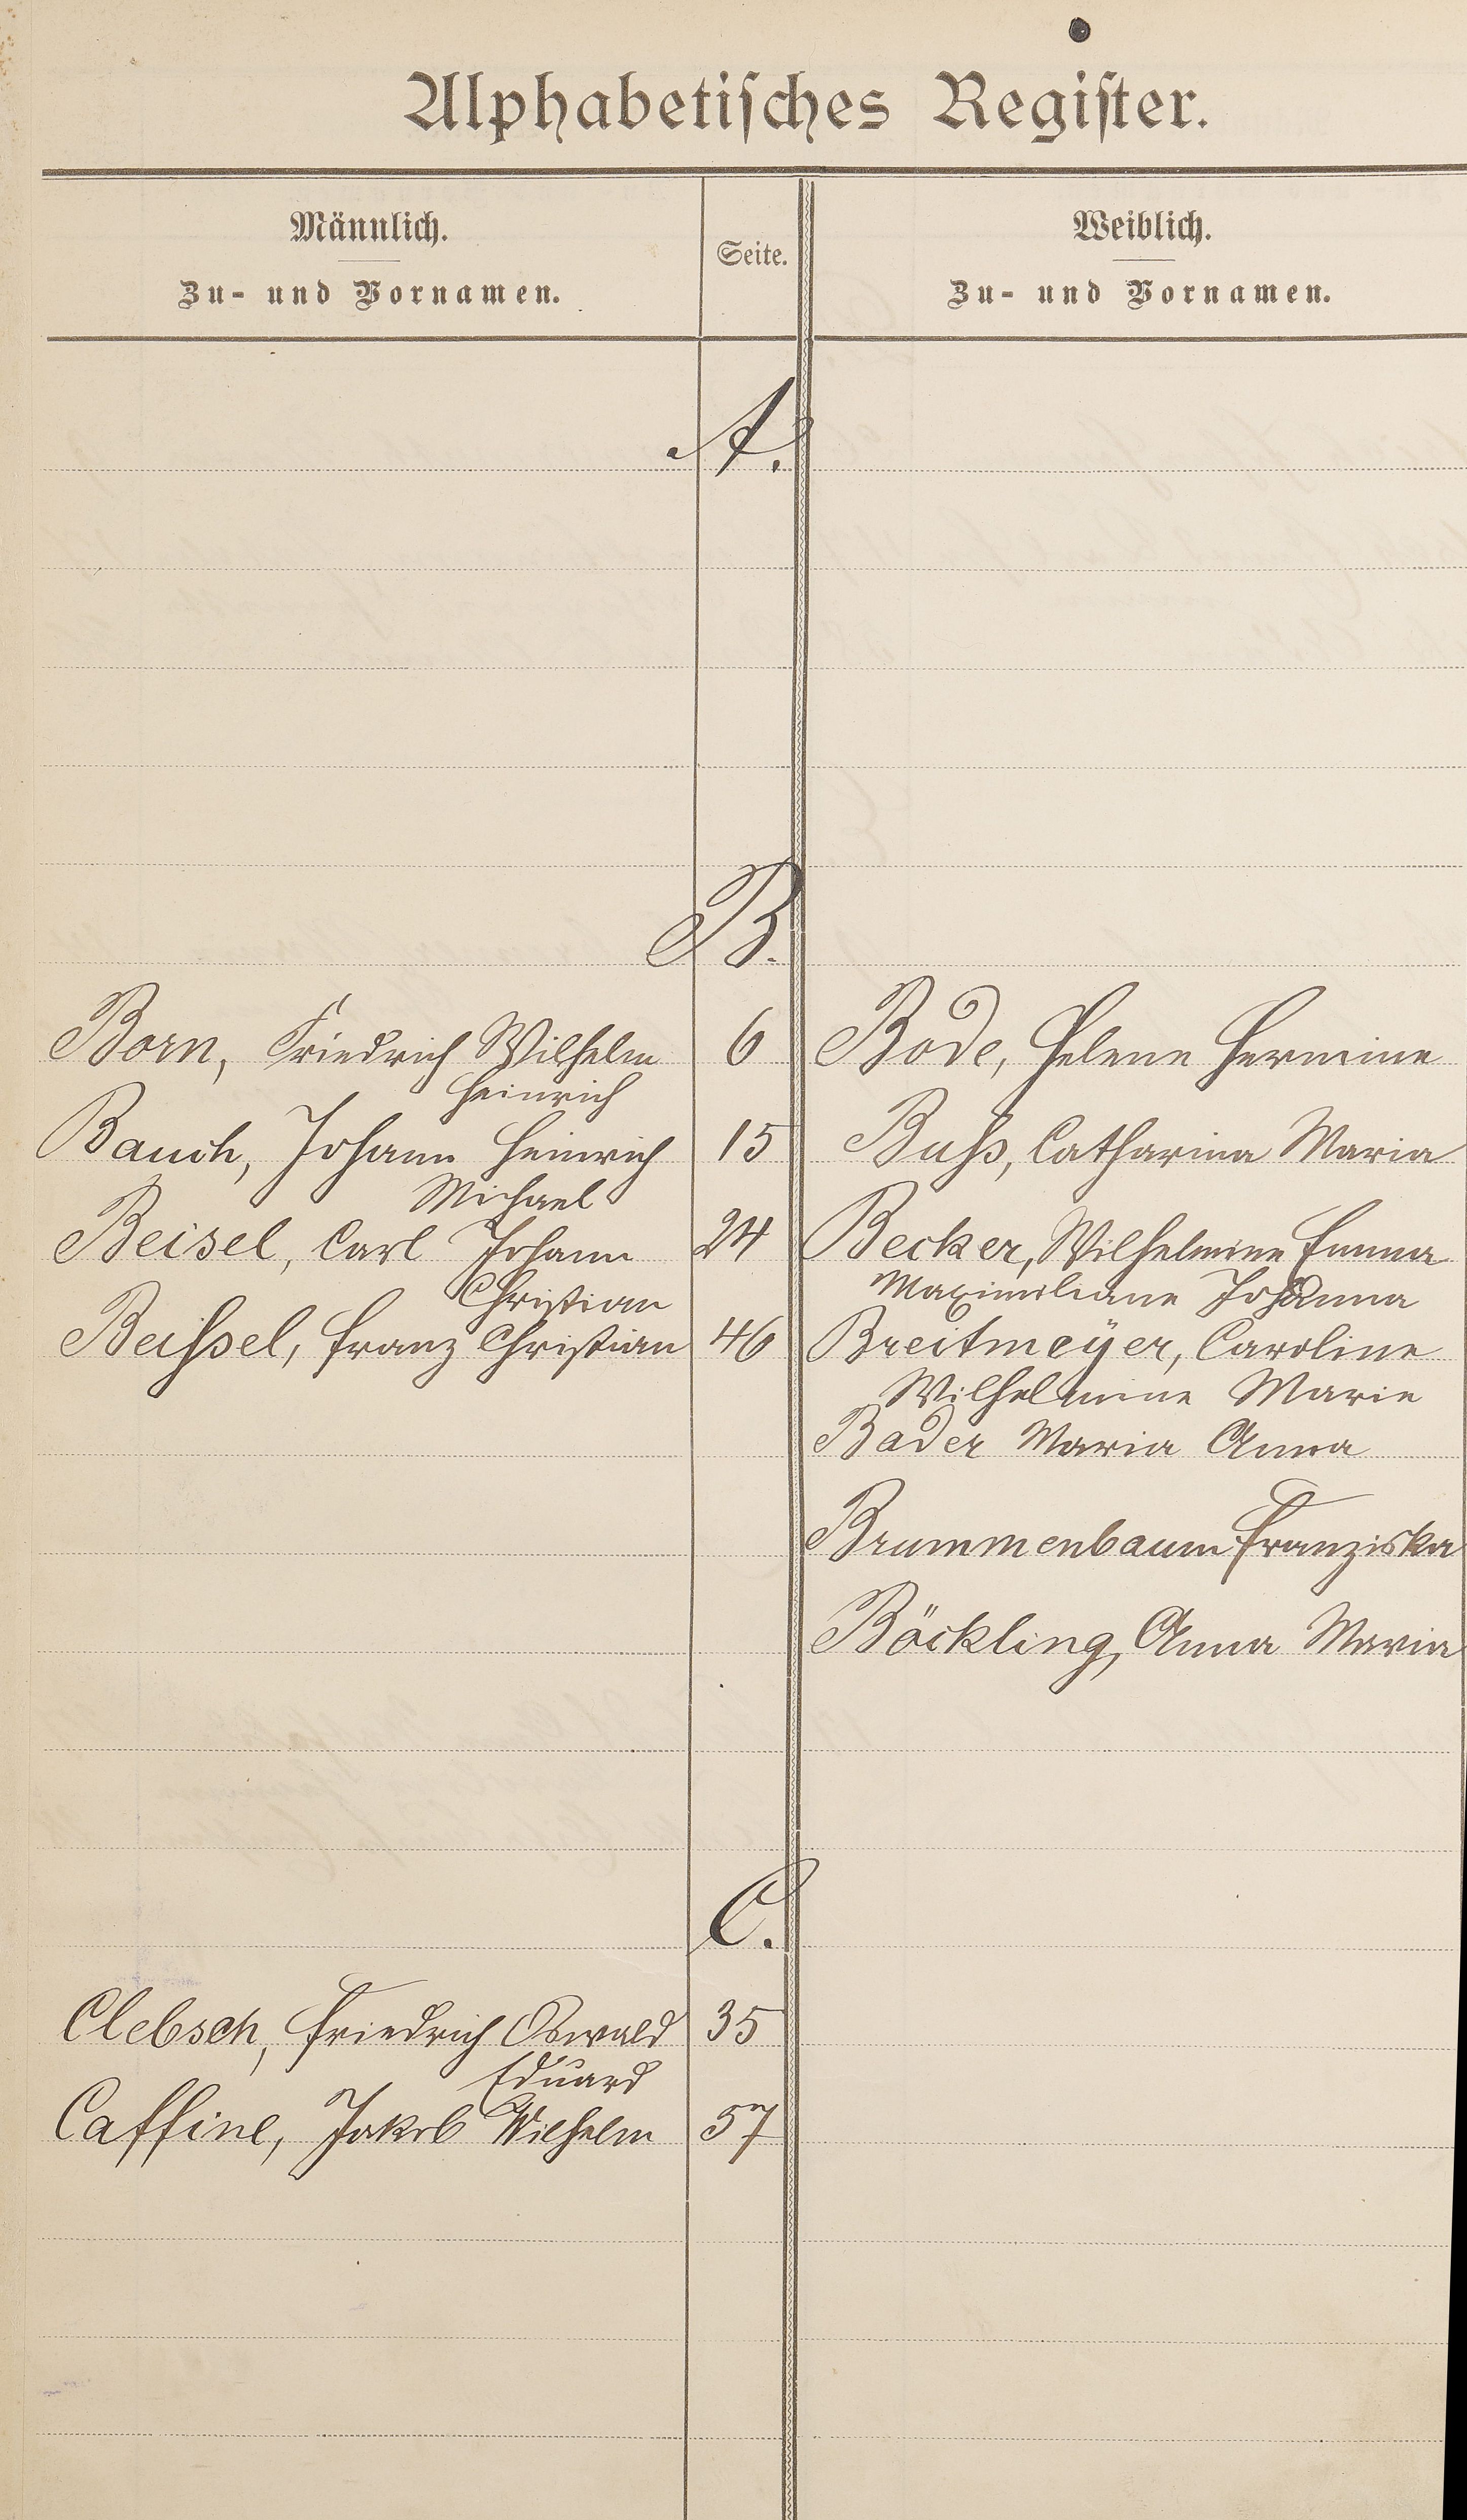 Alphabetisches Register.
Männlich.
Zu- und Vornamen.
Seite.
Weiblich.
Zu- und Vornamen.
A.
B.
Born, Friedrich Wilhelm 6 Bode, Helene Hermine
Heinrich
Bauch, Johann Heinrich 15 Buß, Catharina Maria
Michael
Beisel, Carl Johann 24 Becker, Wilhelmine Emma
Christian Maximiliane Johanna
Beissel, Franz Christian 46 Breitmeÿer, Caroline
Wilhelmine Marie
Bader Maria Anna
Brummenbaum Franziska
Böckling, Anna Maria
C.
Clebsch, Friedrich Oswald 35
Eduard
Caffine, Jakob Wilhelm 57